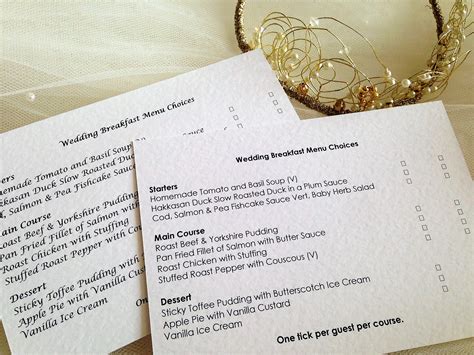 Wedding Breakfast Menu Choices
ers
omemade Tomato and Basil Soup
Hakkasan Duck Slow Roasted Duc
Cod, Salmon & Pea Fishcake Sauce
Main Course
Roast Beef & Yorkshire Pudding
Pan Fried Fillet of Salmon with
Roast Chicken with Stuffing
Stuffed Roast Pepper with Cous
Dessert
Sticky Toffee Pudding with
Apple Pie with Vanilla Cust
Vanilla Ice Cream
Wedding Breakfast Menu Choices
Starters
Homemade Tomato and Basil Soup (V)
Hakkasan Duck Slow Roasted Duck in a Plum Sauce
Cod, Salmon & Pea Fishcake Sauce Vert, Baby Herb Salad
Main Course
Roast Beef & Yorkshire Pudding
Pan Fried Fillet of Salmon with Butter Sauce
Roast Chicken with Stuffing
Stuffed Roast Pepper with Couscous (V)
Dessert
Sticky Toffee Pudding with Butterscotch Ice Cream
Apple Pie with Vanilla Custard
Vanilla Ice Cream
One tick per guest per course.